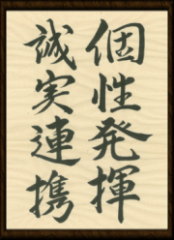 個性発揮
誠実連携